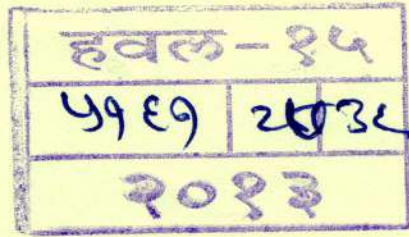 हवल-१५
५१६१
२०१३